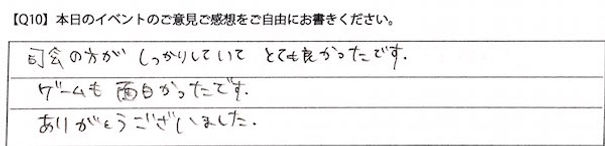 【Q10】本日のイベントのご意見ご感想をご自由にお書きください。
司会の方が しっかりしていて とても良かったです.
ゲームも 面白かったです.
ありがとうございました.